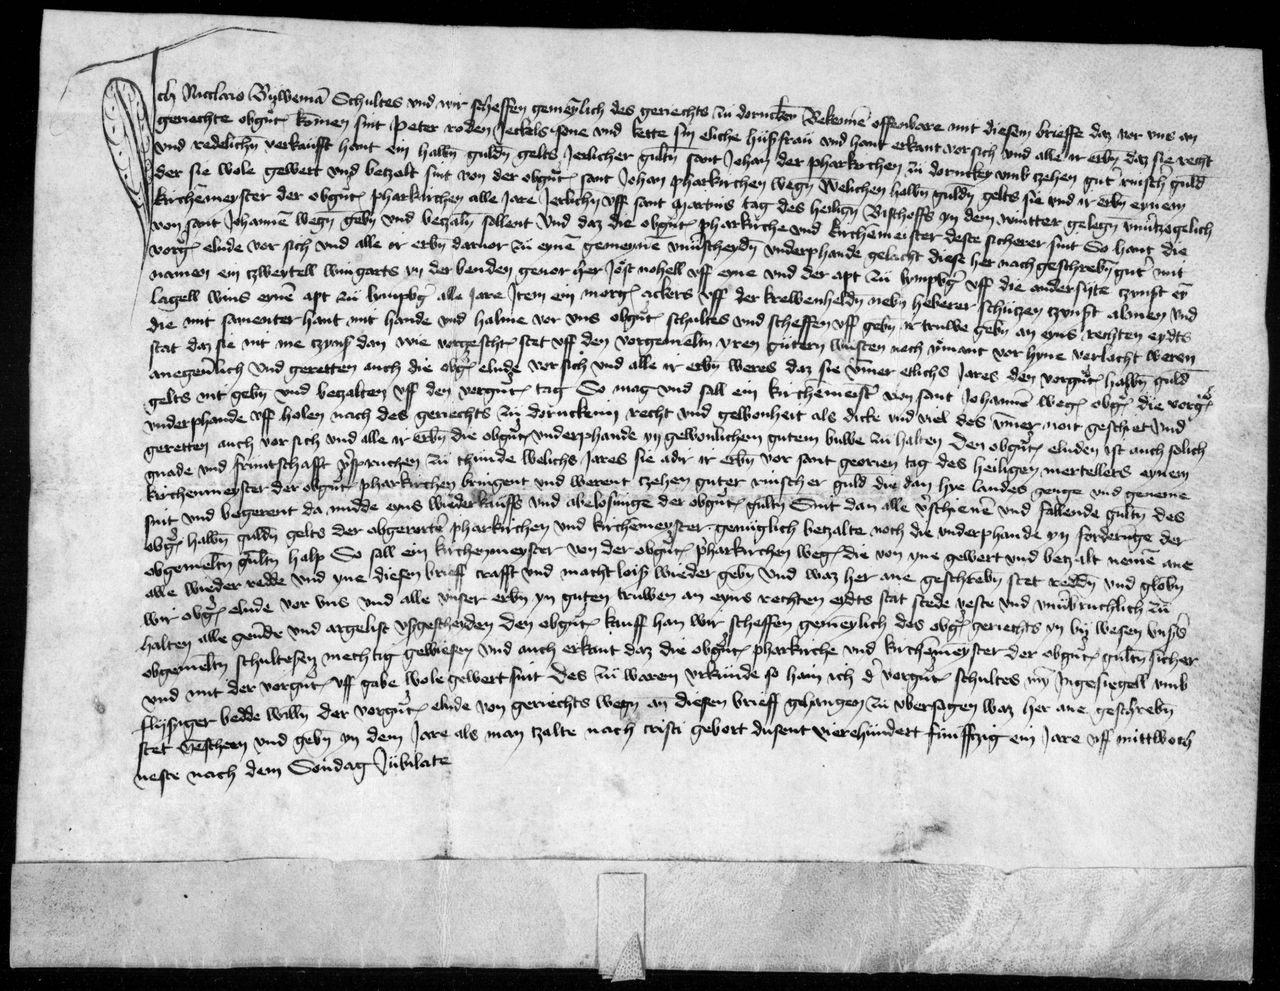 Ich Niclaes Schultes vnd wir scheffen gemeylich des geriechts zu dorncken Bekennē offenbare mit diesem brieffe daz vor vns an
geriechte obgūt komen sint Peter roden Jeckels sone vnd kette sin eliche hūsfraū vnd hant erkant vor sich vnd alle ir erbn daz sie recht
vnd redelichn verkaufft hant ein halbn guldn gelts Jerlicher gultn sant Johan der pharkirchen zu dorncken vmb tzehen gut rinsch guld
der sie wole gewert vnd betzalt sint von der obgūt sant Johan pharkirchen wegn welichen halbn guldn gelts sie vnd ir erbn eynem
kirchēmeyster der obgūt pharkirchen alle Jare Jerlichn vff sant martins tag des heilign Bischoffs yn dem wintter gelegn vnūtzogelich
von sant Johannē wegn gebn vnd betzaln sollent Vnd daz die obgūt pharkirche vnd kirchēmeister deste sicherer sint So hant die
vorg elude vor sich vnd alle ir erbn daruor zu eynē gemeyne vnūscheydn vnderphande gelacht diese her nach geschrebn gut mit
namen ein tzwertell wingarts yn der benden genor her Jost nohell vff eyne vnd der apt zu lympg vff die andersyte tzynst ey
lagell wins eynē apt zu lympg alle Jare Item ein morg ackers vff der krewenheldn nebn heberer schützen tzynst almen vnd
die mit samenter hant mit hande vnd halme vor vns obgūt schultes vnd scheffen vff gebn ir truwe gebn an eyns rechten eydts
stat daz sie nit me tzynss dan wie vorgescht stet vff den vorgemeltn yren gūtern wūsten noch nymant vor hyne verlacht weren
anegeuērlich vnd geretten auch die obg elude vor sich vnd alle ir erbn weres daz sie ymer etlichs Jares den vorgūt halbn guld
gelts nit gebn vnd betzalten vff den vorgūt tag So mag vnd sall ein kirchēmeyst von sant Johannē weg obg die vorg
vnderphande vff holen nach des geriechts zu dornckenn recht vnd gewonheit als dicke vnd viel des ymer noit geschiet Vnd
geretten auch vor sich vnd alle ir Erbn die obgūt vnderphande yn gewonlichem gutem buwe zu halten Den obgūt eluden ist auch solich
gnade vnd fruntschafft vspruchen zu thunde welichs Jares sie adir ir erbn vor sant georien tag des heiligen mertellers eynem
kirchenmeyster der obgūt pharkirchen bringent vnd werent tzehen guter rinscher guld die dan hye landes genge vnd geneme
sint vnd begerent da midde eyns wiederkauffs vnd abelosunge der obgūt gultn Sint dan alle vschienē vnd fallende gultn des
obg halbn guldn gelts der obgerortē pharkirchen vnd kirchēmeyster genuglich betzalte noch die vnderphande yn forderutge der
obgemeltn gultn halp So sall ein kirchenmeyster von der obgūt pharkirchen weg die von yne gewert vnd betzalt nemē ane
alle wieder redde vnd yne diesen brieff crafft vnd macht loiß wieder gebn Vnd waz her ane geschrebn stet reddn vnd globn
wir obg elude vor vns vnd alle vnser erbn yn guten truwen an eyns rechten eydts stat stede veste vnd vnūbruchlich zu
halten alle geuēde vnd argelist vsgescheiden Den obgūt kauff han wir scheffen gemeylich des obg geriechts yn bij wesen vnsers
obgemeltn schultesen mechtig gewiesen vnd auch erkant daz die obgūt pharkirche vnd kirchēmeyster der obgūt gultn sicher
vnd mit der vorgūt vff gabe wole gewert sint Des zu waren vrkunde so hain ich d vorgūt schultes myn Ingesiegell vmb
flyssiger bedde willn der vorgūt elude von geriechts wegn an diesen brieff gehangen zu vbersagen waz her ane geschrebn
stet Gescheen vnd gebn yn dem Jare als man tzalte nach cristi gebort dusent vierehundert funffzig ein Jare vff mittwoch
neste nach dem Sondag Jubilate